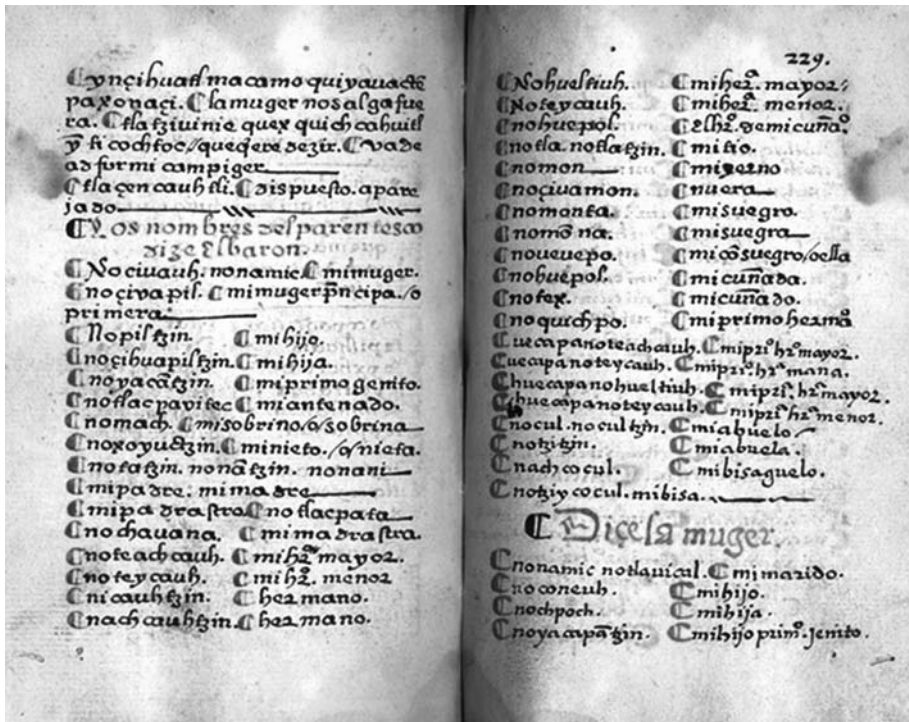 ¶ ynçihuatl macamo quiyauactẽ
paxonaçi. ¶ la muger no salga fue
ra. ¶ tlatziuinie quex quich cahuitl
ỹ ti cochtoc/queq̃ere dezir. ¶ va de
ad formicam piger
¶ tlaçencauhtli. ¶ dispuesto. apare
jado
¶ Los nombres del parentesco
dize El baron.
¶ Nociuauh. nonamic ¶ mi muger.
¶ noçiva pil. ¶ mi muger prĩncipa./o
primera
¶ Nopiltzin. ¶ mi hijo.
¶ noçihuapiltzin. ¶ mi hija.
¶ noyacãtzin. ¶ mi primo genito.
¶ notlacpavitec ¶ mi antenado.
¶ nomach. ¶ mi sobrino/o/sobrina
¶ noxoyuctzin. ¶ mi nieto./o/nieta.
¶ notatzin. nonãtzin. nonani
¶ mi padre: mi madre
¶ mi padrastro ¶ notlacpata
¶ nochauana. ¶ mi madrastra.
¶ noteachcauh. ¶ mi hrº mayor.
¶ noteycauh. ¶ mi hrº. menor
¶ nicauhtzin. ¶ hermano.
¶ nachcauhtzin. ¶ hermano.
229.
¶ Nohueltiuh. ¶ mi herª. mayor:
¶ Noteycauh. ¶ mi herª. menor.
¶ nohuepol. ¶ El hrº. de mi cuñaº.
¶ notla. notlatzin. ¶ mi tio.
¶ nomon ¶ mi yerno
¶ noçivamon. ¶ nuera
¶ nomonta. ¶ mi suegro.
¶ nomõna. ¶ mi suegra
¶ noueuepo. ¶ mi cõsuegro/o ella
¶ nohuepol. ¶ mi cuñada.
¶ notex. ¶ mi cuñado.
¶ noquichpo. ¶ mi primo hermã
¶ uecapanoteachcauh. ¶ mi priº. hrº mayor.
¶ uecapanoteycauh. ¶ mi priº. hrª mana.
¶ huecapanohueltiuh. ¶ mi priº. hrª mayor
¶ huecapanoteycauh. ¶ mi priº. hrª menor.
¶ nocul. nocultzin. ¶ mi abuelo
¶ notzitzin. ¶ mi abuela.
¶ nachcocul. ¶ mi bisaguelo.
¶ notziycocul. mi bisa.
¶ Diçe la muger.
¶ nonamic notlauical. ¶ mi marido.
¶ noconeuh. ¶ mi hijo.
¶ nochpoch. ¶ mi hija.
¶ noyacapãtzin. ¶ mi hijo primº. jenito.